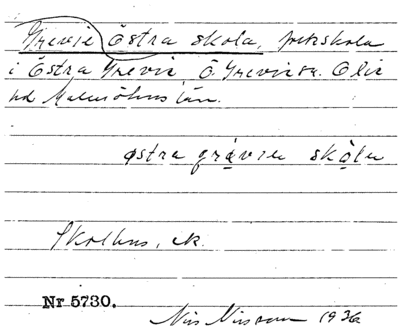 Grevie Östra skola, folkskola
i Östra Grevie, Ö Grevie sn. Oxie
hd Malmöhus län.
østra grävie skǫla
Skolhus, ek.
Nr 5730.
Nils Nilsson 1936